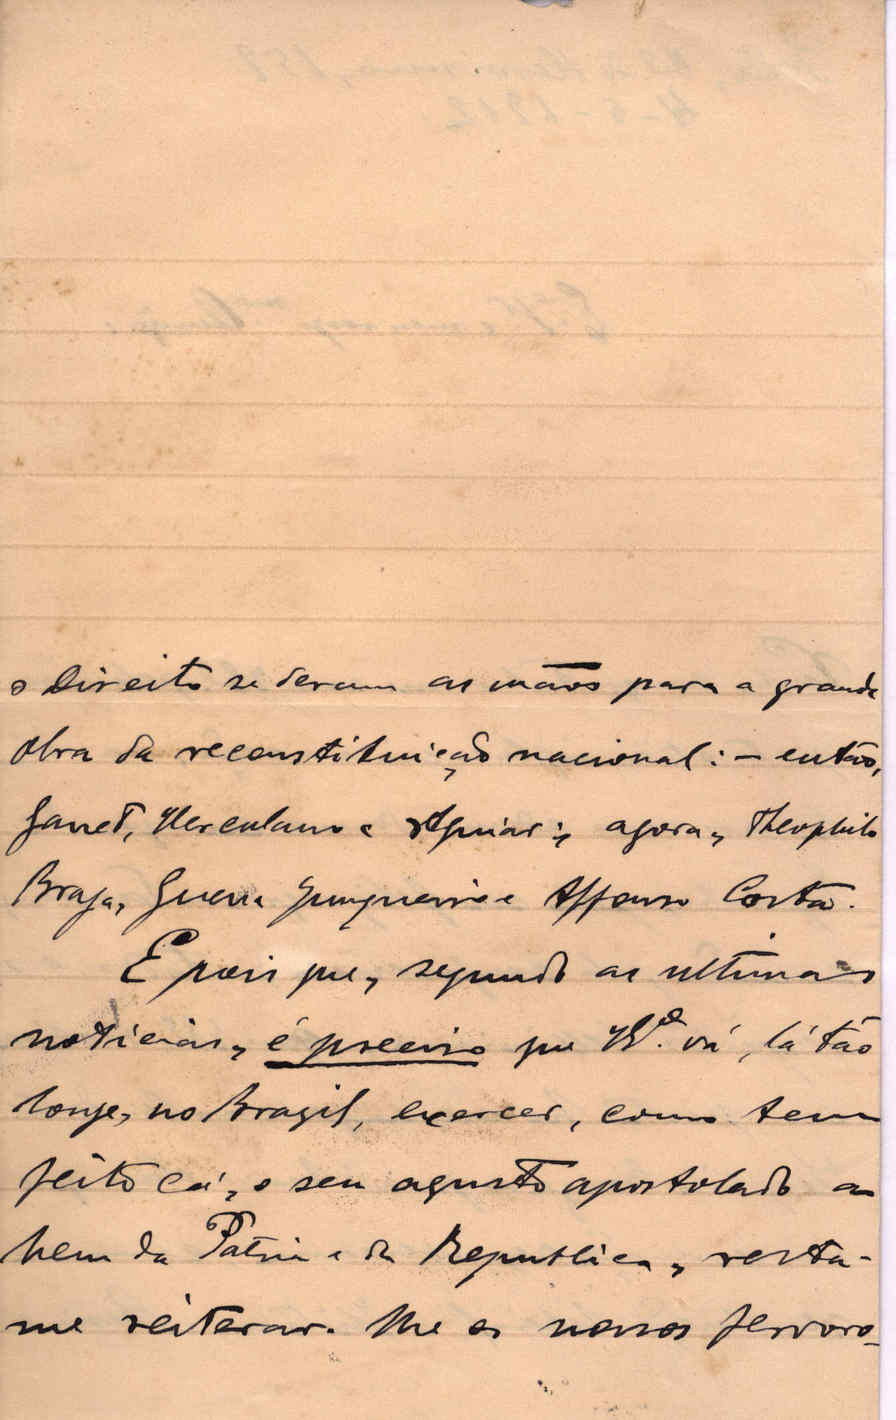 o Direito se deram as mãos para a grande
obra da reconstituição nacional: — então,
Garret, Herculano e Aguiar; agora, Theophilo
Braga, Guerra Junqueiro e Affonso Costa.
E pois que, segundo as ultimas
noticias, é preciso que V. Ex.ª vá, lá tão
longe, no Brazil, exercer, como tem
feito cá, o seu agusto apostolado a
bem da Patria e da Republica, resta-
me reiterar-lhe os nossos fervoro-